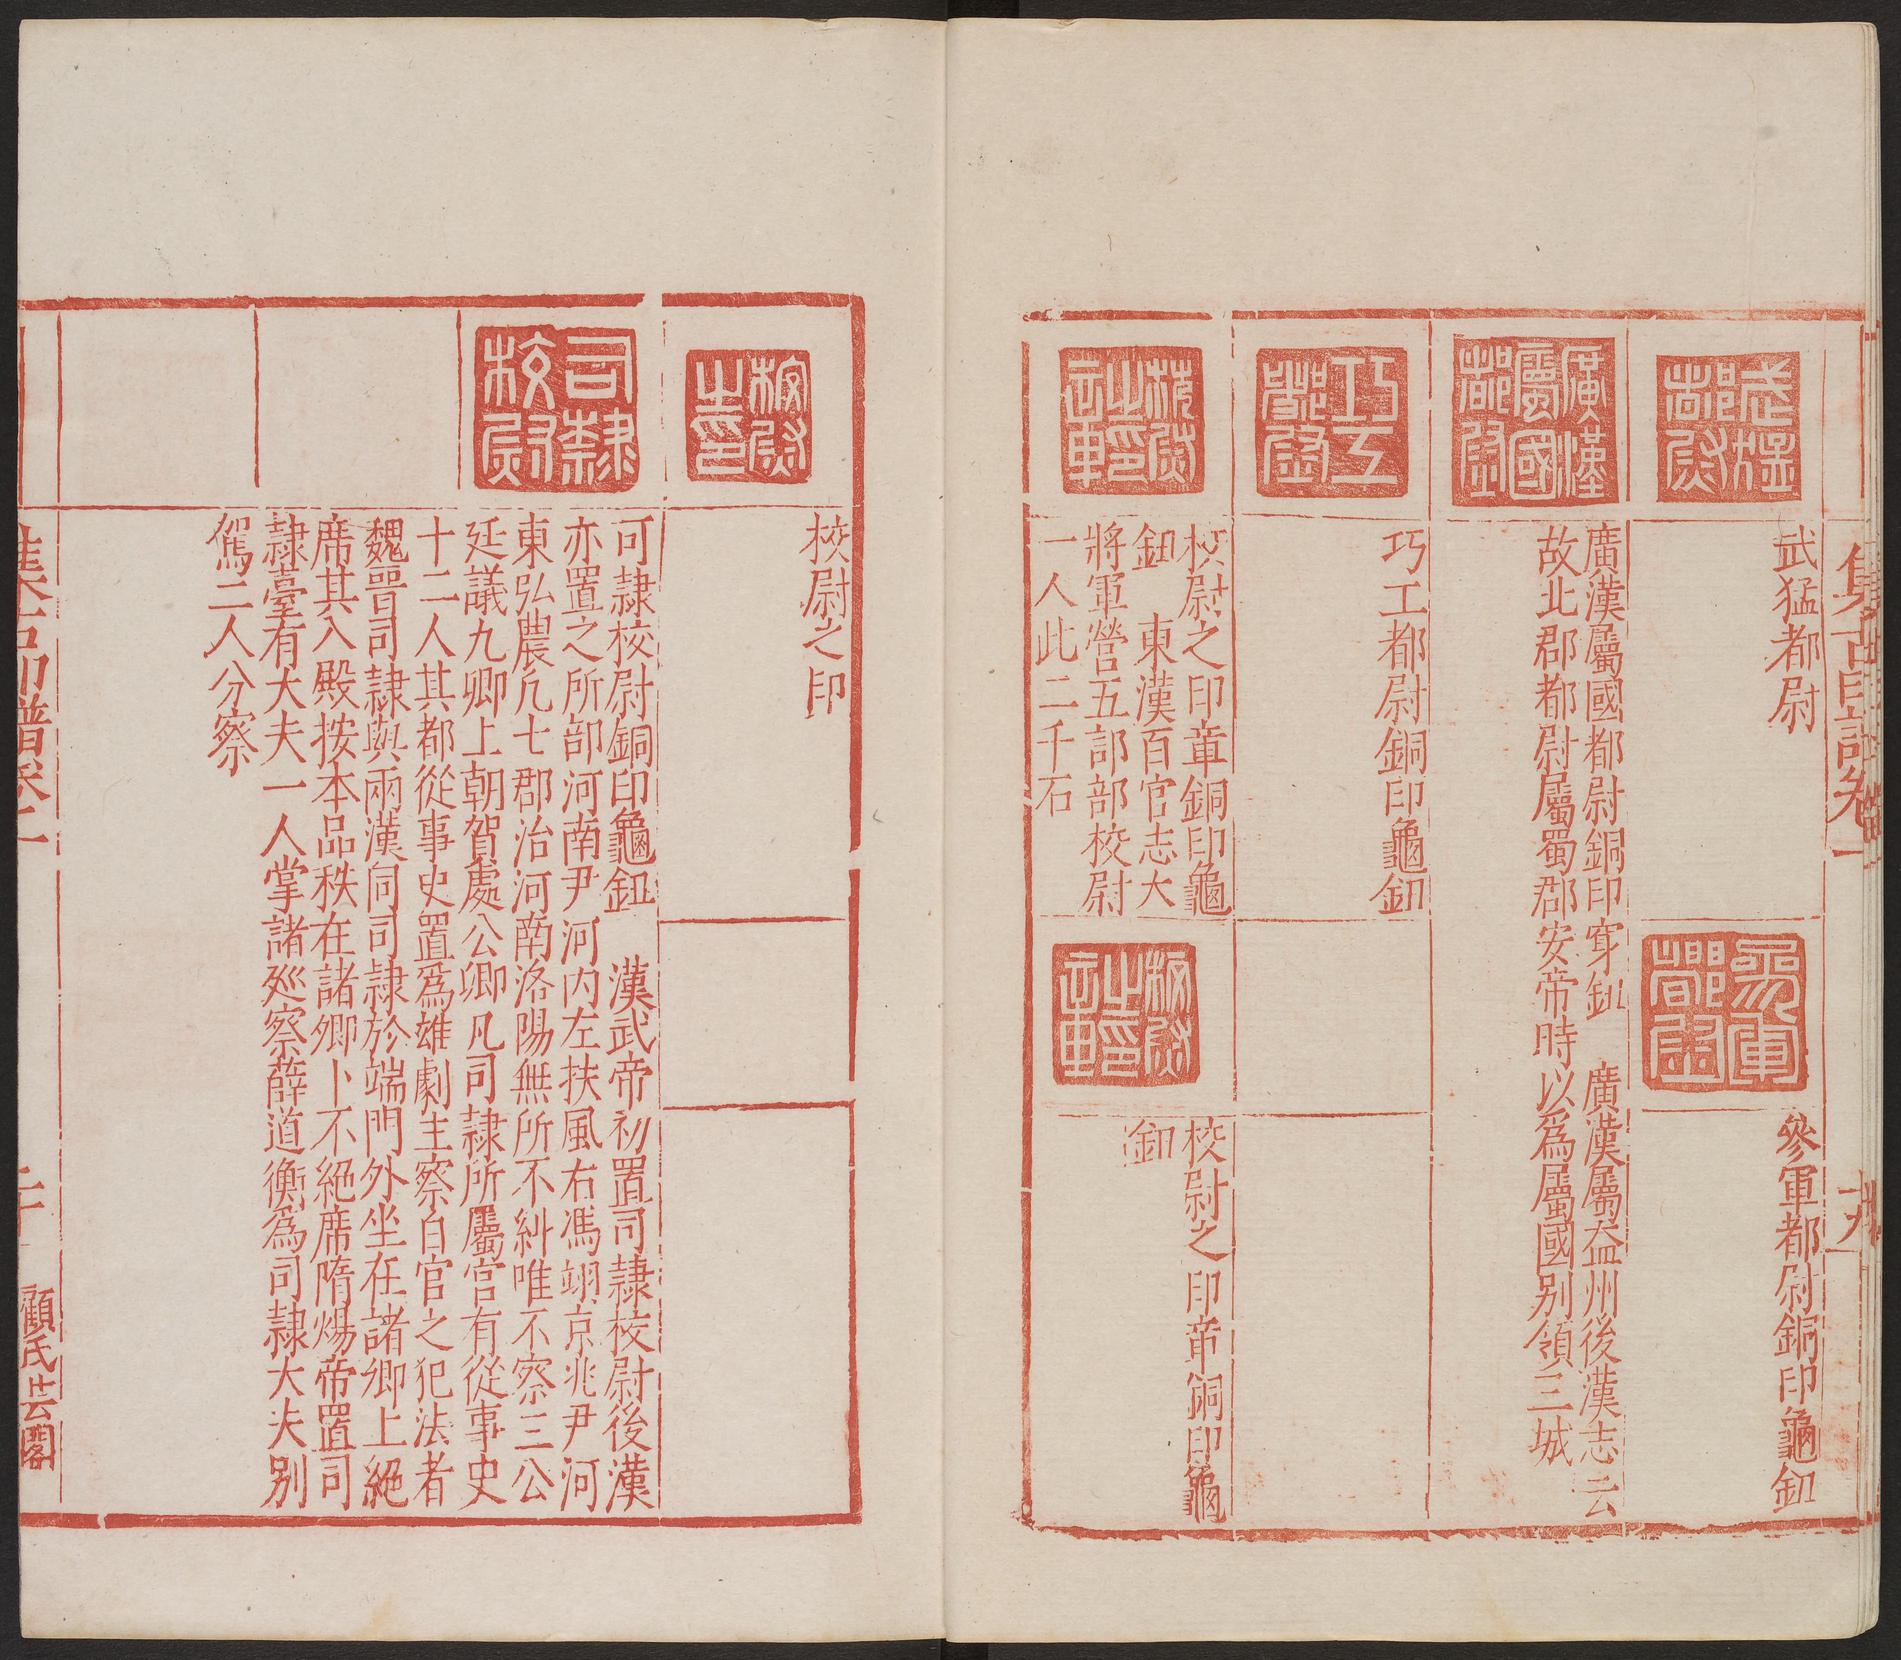 集古印譜卷二
十九
武猛都尉
武猛都尉
參軍都尉
參軍都尉銅印龜鈕
廣漢屬國都尉
廣漢屬國都尉銅印穿鈕　廣漢屬益州後漢志云
故北郡都尉屬蜀郡安帝時以爲屬國别領三城
巧工都尉
巧工都尉銅印龜鈕
校尉之印章
校尉之印章銅印龜
鈕　東漢百官志大
將軍營五部部校尉
一人此二千石
校尉之印章
校尉之印章銅印龜
鈕
校尉之印
校尉之印
司隸校尉
可隸校尉銅印龜鈕　漢武帝初置司隸校尉後漢
亦置之所部河南尹河内左扶風右馮翊京兆尹河
東弘農凡七郡治河南洛陽無所不糾唯不察三公
廷議九卿上朝賀處公卿凡司隸所屬官有從事史
十二人其都從事史置爲雄劇主察百官之犯法者
魏晉司隸與兩漢同司隸於端門外坐在諸卿上絕
席其入殿按本品秩在諸卿卜不絕席隋煬帝置司
隸臺有大夫一人掌諸廵察薛道衡爲司隸大夫别
駕二人分察
集古印譜卷二
二十
顧氏芸閣